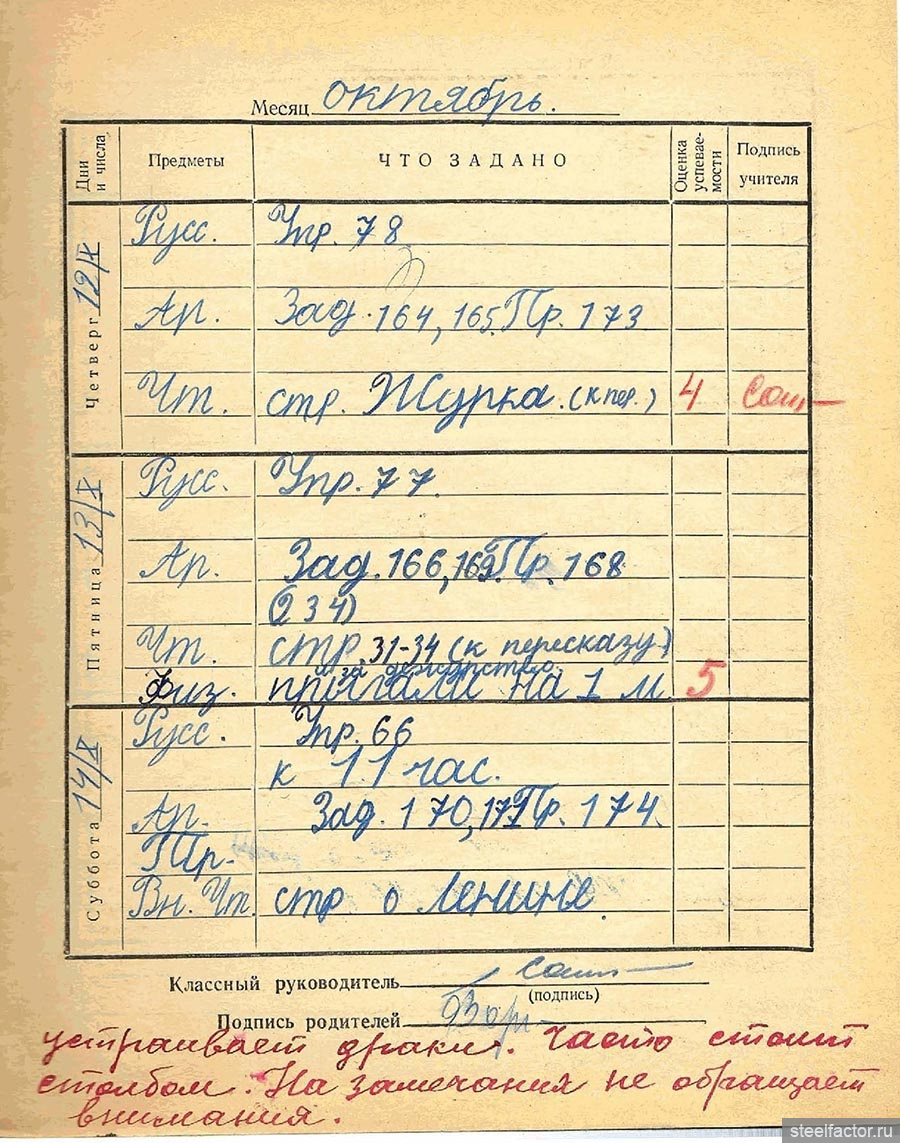 Месяц октябрь.
Дни и числа Предметы ЧТО ЗАДАНО Оценка успевае-мости Подпись учителя
Четверг 12/X
Русс. Упр. 78
Ар. Зад. 164, 165. Пр. 173
Чт. стр. Журка (к пер.) 4
Пятница 13/X
Русс. Упр. 77.
Ар. Зад. 166, 169. Пр. 168
(2 3 4)
Чт. стр. 31-34 (к пересказу)
и за дежурство
Физ. прыгали на 1 м 5
Суббота 14/X
Русс. Упр. 66
к 11 час.
Ар. Зад. 170, 171 Пр. 174
Тр.
Вн. Чт. стр о Ленине
Классный руководитель
(подпись)
Подпись родителей
устраивает драки. Часто стоит
столбом. На замечания не обращает
внимания.
steelfactor.ru